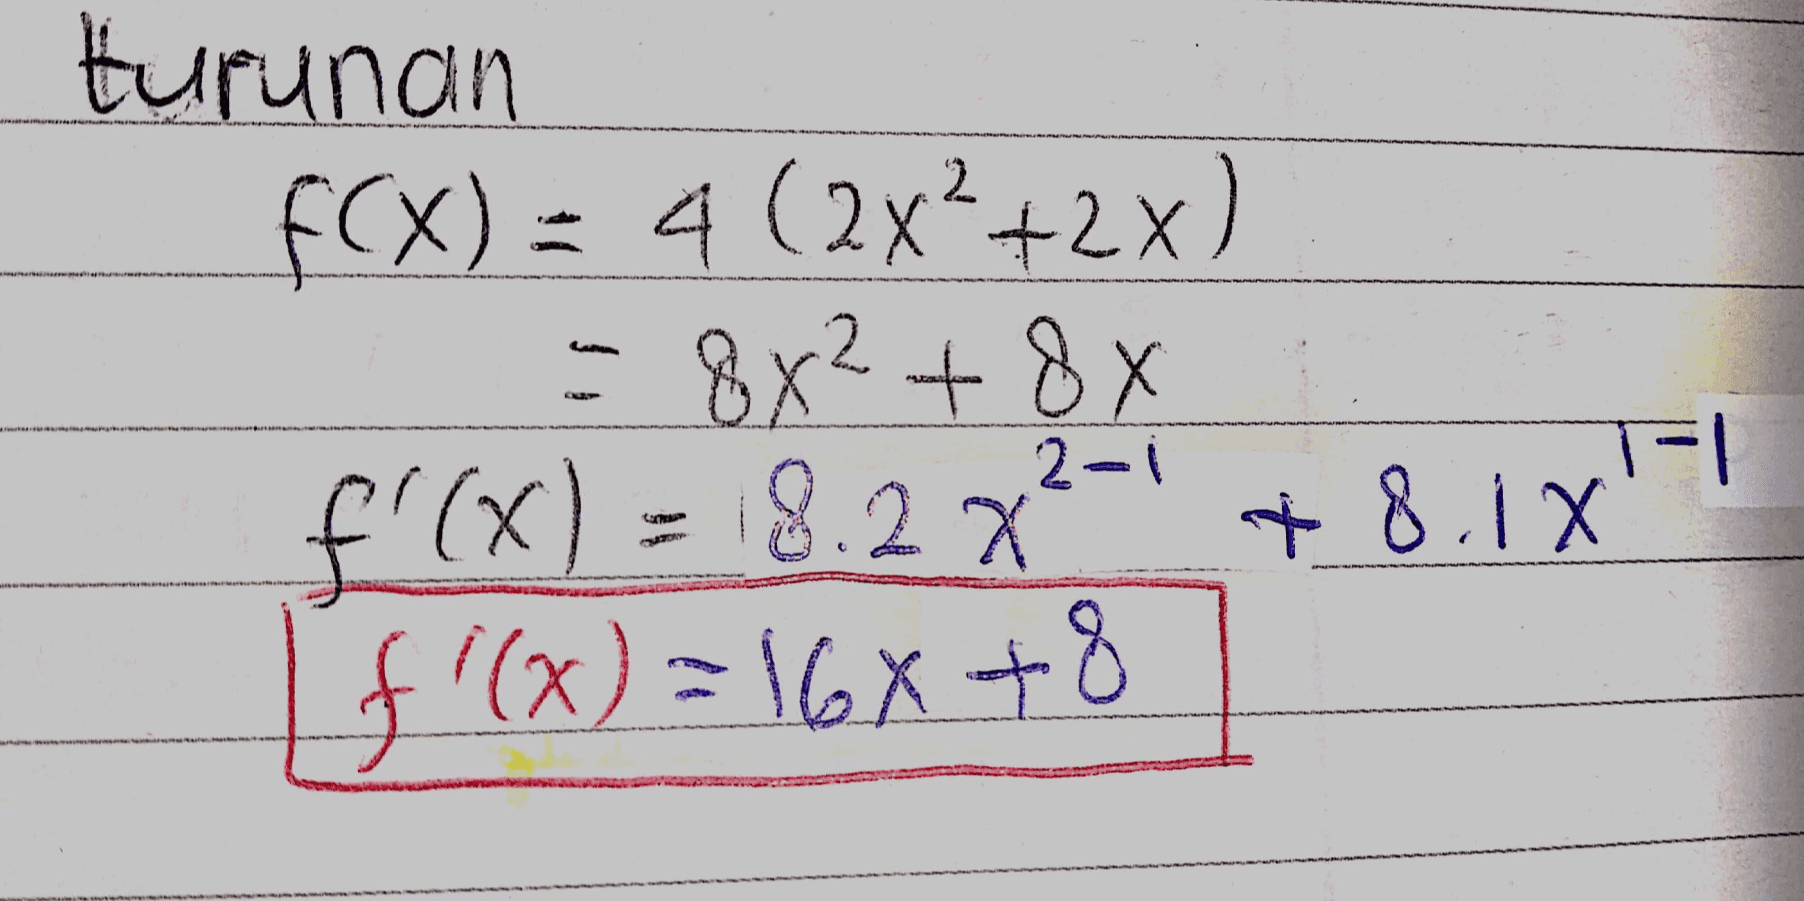 turunan
f(x) = 4 (2x²+2x)
= 8x² + 8x
f'(x) = 8.2 x²⁻¹ + 8.1x¹⁻¹
f'(x) = 16x + 8